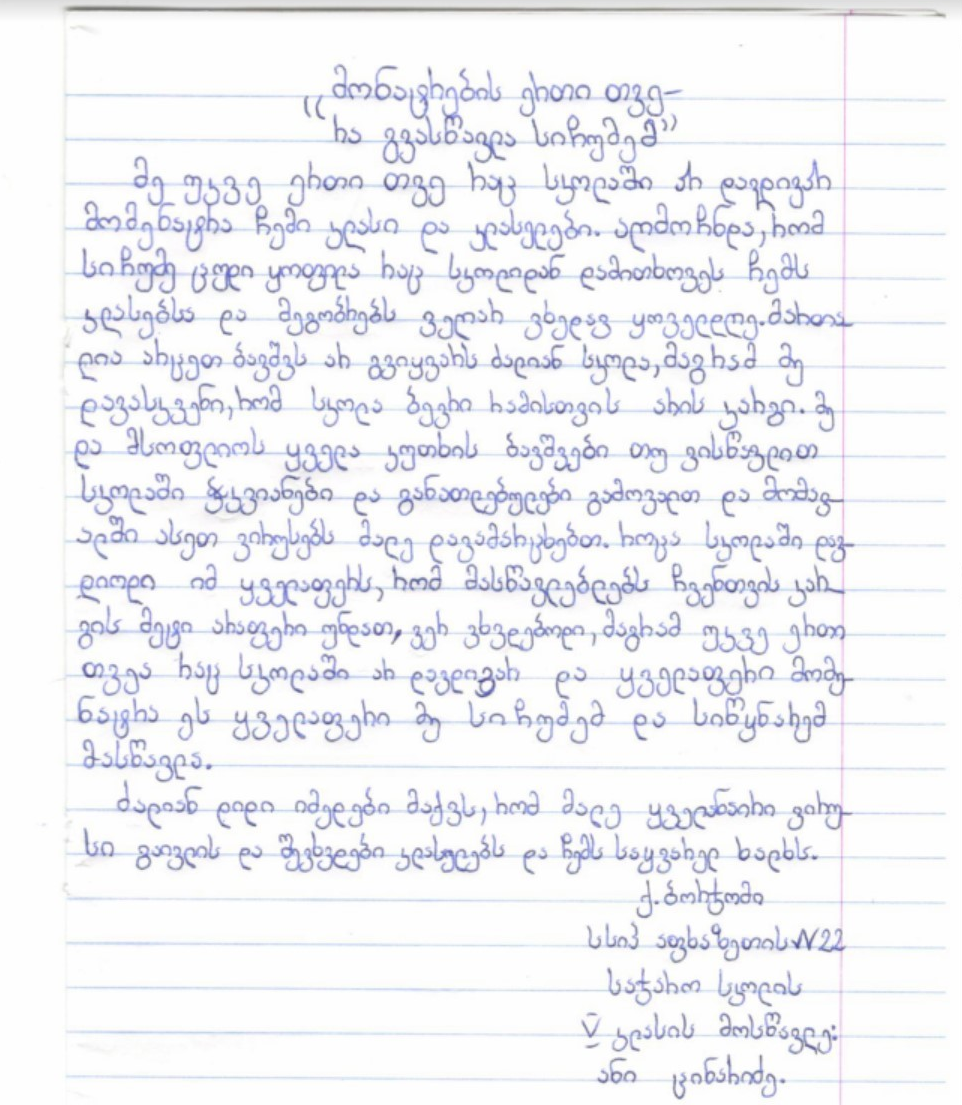 „მონატრების ერთი თვე-
რა გვასწავლა სიჩუმემ”
მე უკვე ერთი თვე რაც სკოლაში არ დავდივარ
მომენატრა ჩემი კლასი და კლასელები. აღმოჩნდა, რომ
სიჩუმე ცუდი ყოფილა რაც სკოლიდან დამითხოვეს ჩემს
კლასებსა და მეგობრებს ველარ ვხედავ ყოველდღე. მართა
ლია არცეთ ბავშვს არ გვიყვარს ძალიან სკოლა, მაგრამ მე
დავასკვენი, რომ სკოლა ბევრი რამისთვის არის კარგი. მე
და მსოფლიოს ყველა კუთხის ბავშვები თუ ვისწავლით
სკოლაში ჭკვიანები და განათლებულები გამოვალთ და მომავ-
ალში ასეთ ვირუსებს მალე დავამარცხებთ. როცა სკოლაში დავ-
დიოდი იმ ყველაფერს, რომ მასწავლებლებს ჩვენთვის კარ-
გის მეტი არაფერი უნდათ, ვერ ვხვდებოდი, მაგრამ უკვე ერთი
თვეა რაც სკოლაში არ დავდივარ და ყველაფერი მომე-
ნატრა ეს ყველაფერი მე სიჩუმემ და სიწყნარემ
მასწავლა.
ძალიან დიდი იმედები მაქვს, რომ მალე ყველანაირი ვირუ-
სი გაივლის და შევხვდები კლასელებს და ჩემს საყვარელ ხალხს.
ქ. ბორჯომი
სსიპ აფხაზეთის N22
საჯარო სკოლის
V კლასის მოსწავლე:
ანი ცინარიძე.